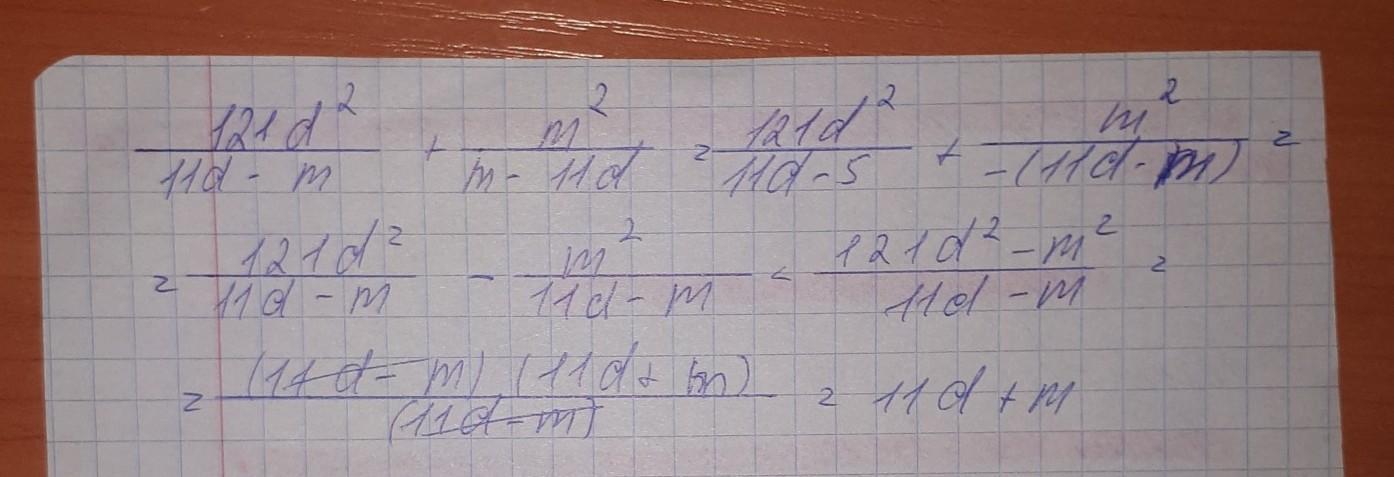 121d²/(11d - m) + m²/(m - 11d) = 121d²/(11d - 5) + m²/(-(11d - m)) =
= 121d²/(11d - m) - m²/(11d - m) = (121d² - m²)/(11d - m) =
= (11d - m)(11d + m)/(11d - m) = 11d + m